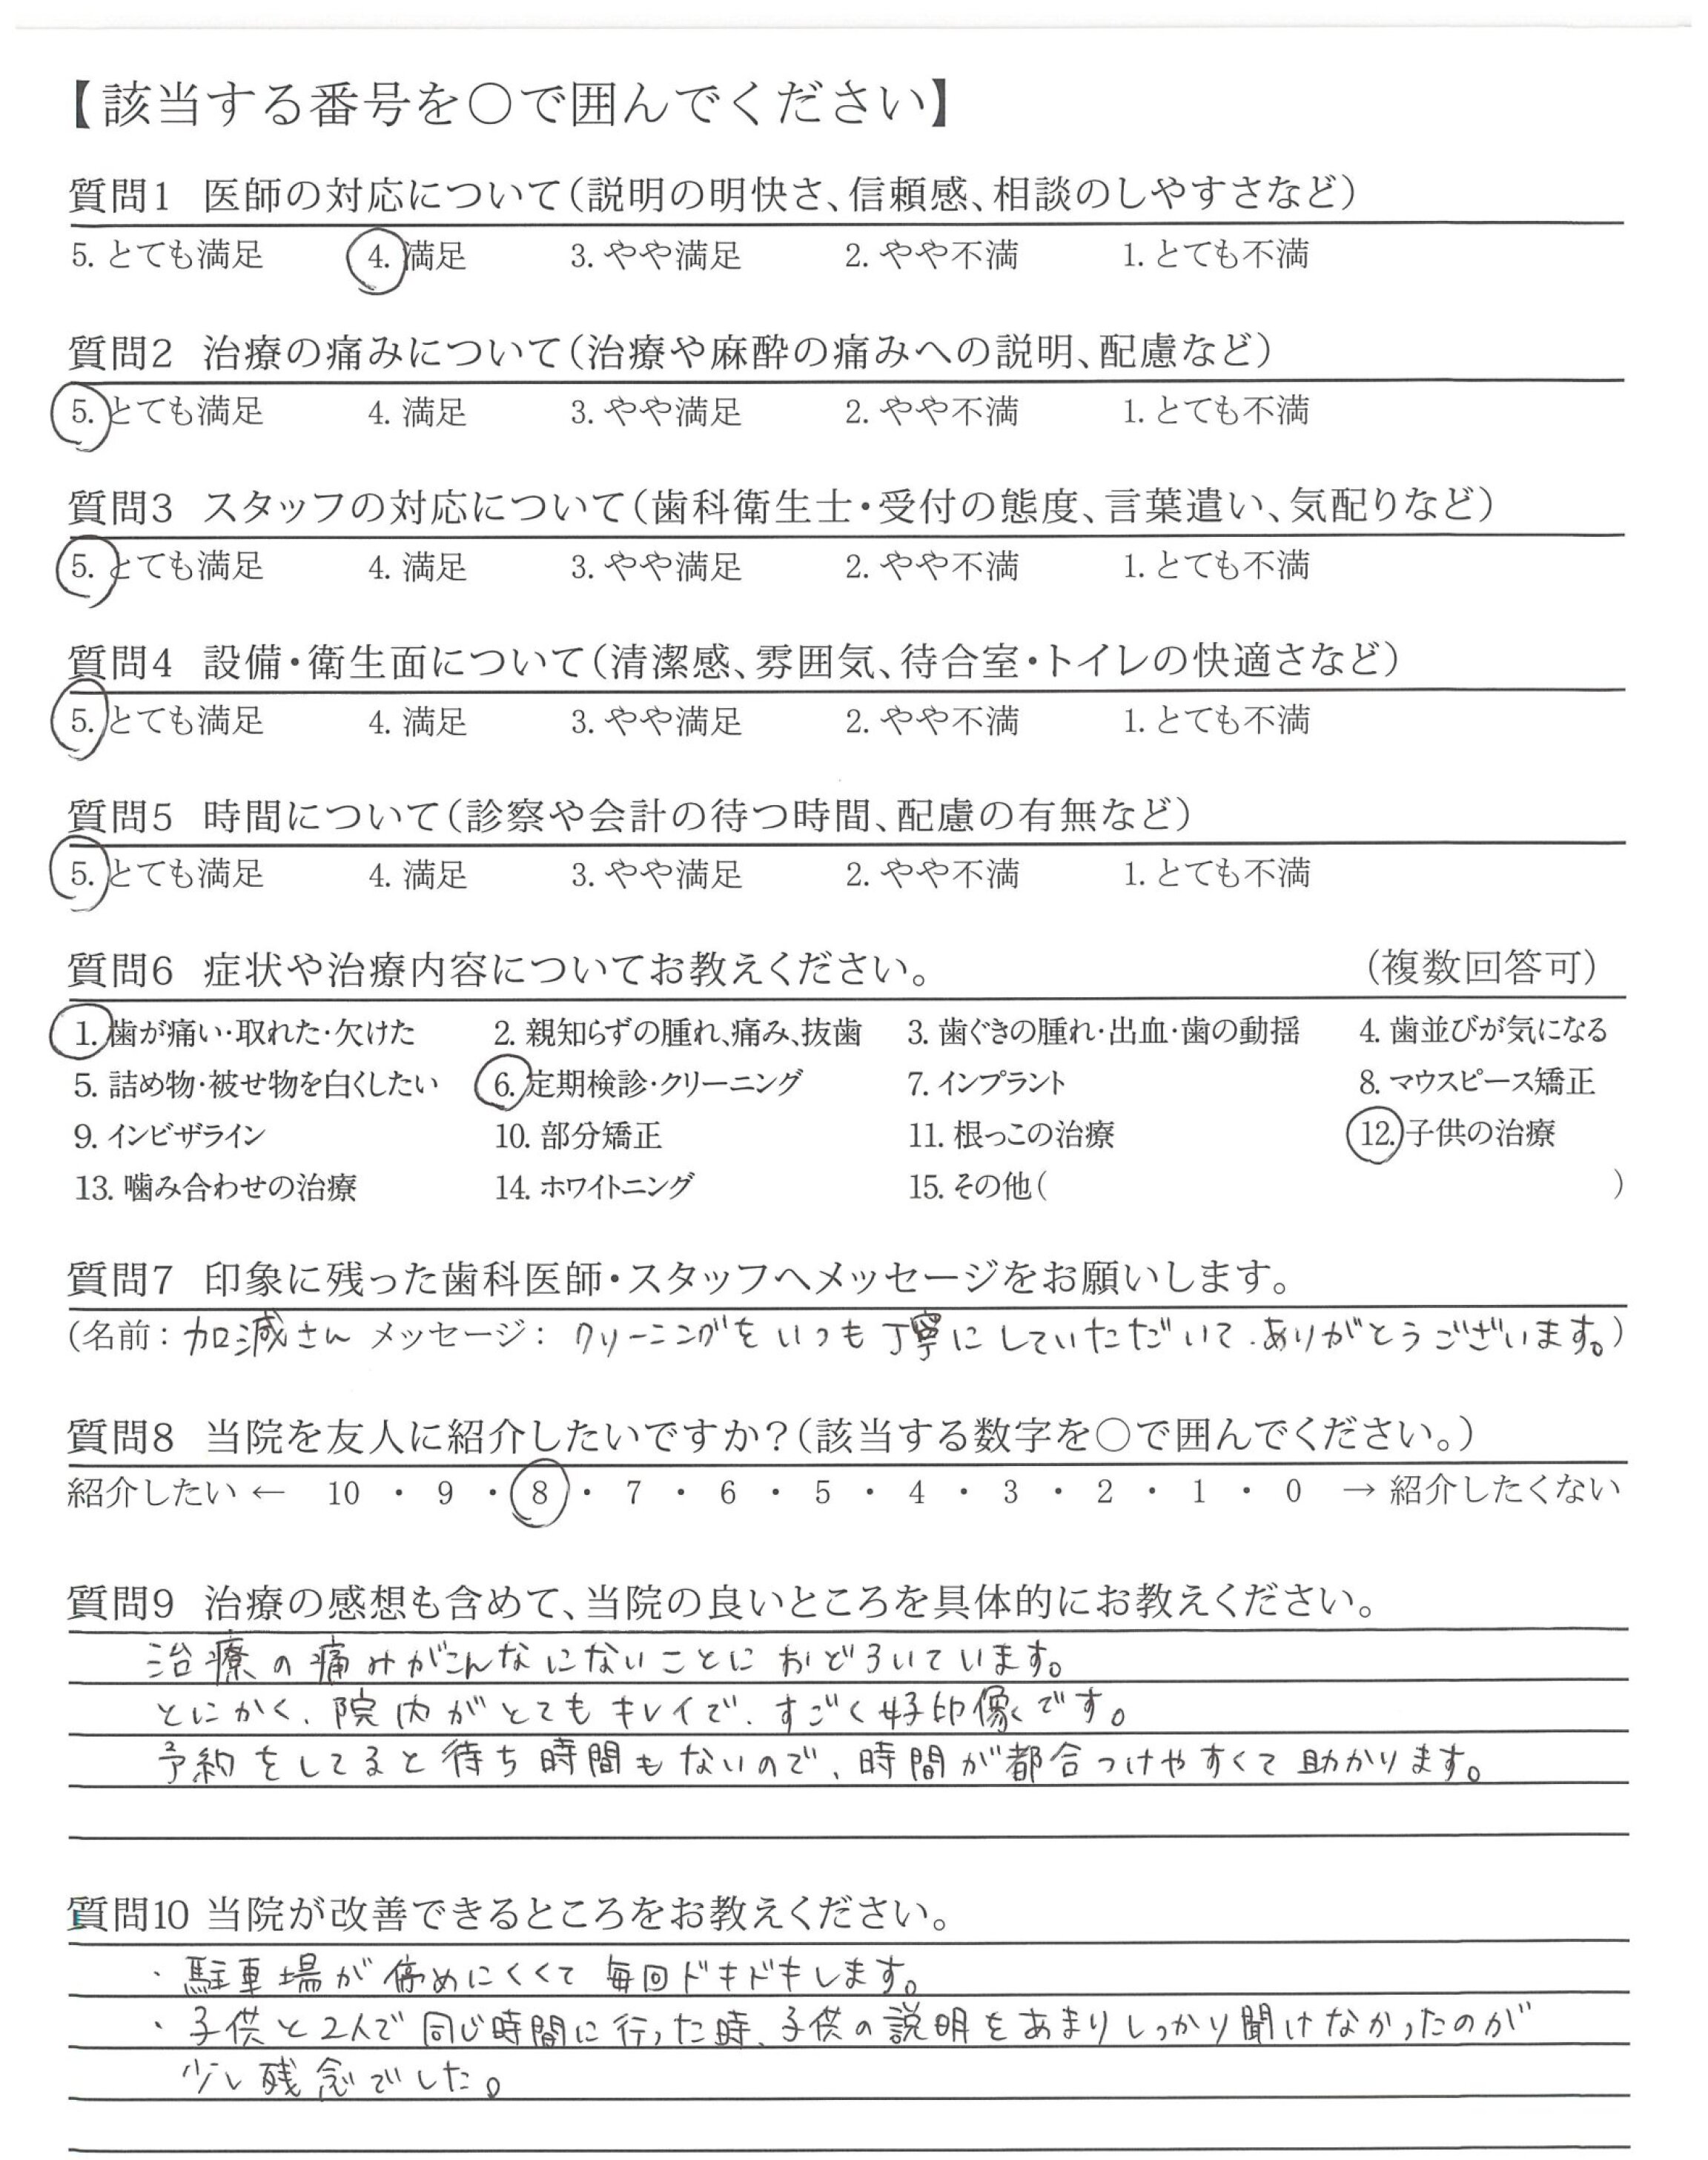 【該当する番号を○で囲んでください】
質問1 医師の対応について（説明の明快さ、信頼感、相談のしやすさなど）
5. とても満足 4. 満足 3. やや満足 2. やや不満 1. とても不満
質問2 治療の痛みについて（治療や麻酔の痛みへの説明、配慮など）
5. とても満足 4. 満足 3. やや満足 2. やや不満 1. とても不満
質問3 スタッフの対応について（歯科衛生士・受付の態度、言葉遣い、気配りなど）
5. とても満足 4. 満足 3. やや満足 2. やや不満 1. とても不満
質問4 設備・衛生面について（清潔感、雰囲気、待合室・トイレの快適さなど）
5. とても満足 4. 満足 3. やや満足 2. やや不満 1. とても不満
質問5 時間について（診察や会計の待つ時間、配慮の有無など）
5. とても満足 4. 満足 3. やや満足 2. やや不満 1. とても不満
質問6 症状や治療内容についてお教えください。 （複数回答可）
1. 歯が痛い・取れた・欠けた 2. 親知らずの腫れ、痛み、抜歯 3. 歯ぐきの腫れ・出血・歯の動揺 4. 歯並びが気になる
5. 詰め物・被せ物を白くしたい 6. 定期検診・クリーニング 7. インプラント 8. マウスピース矯正
9. インビザライン 10. 部分矯正 11. 根っこの治療 12. 子供の治療
13. 噛み合わせの治療 14. ホワイトニング 15. その他（ ）
質問7 印象に残った歯科医師・スタッフへメッセージをお願いします。
（名前：加減さん メッセージ：クリーニングをいつも丁寧にしていただいて、ありがとうございます。）
質問8 当院を友人に紹介したいですか？（該当する数字を○で囲んでください。）
紹介したい ← 10 ・ 9 ・ 8 ・ 7 ・ 6 ・ 5 ・ 4 ・ 3 ・ 2 ・ 1 ・ 0 → 紹介したくない
質問9 治療の感想も含めて、当院の良いところを具体的にお教えください。
治療の痛みがこんなにないことにおどろいています。
とにかく、院内がとてもキレイで、すごく好印像です。
予約をしてると待ち時間もないので、時間が都合つけやすくて助かります。
質問10 当院が改善できるところをお教えください。
・駐車場が停めにくくて毎回ドキドキします。
・子供と2人で同じ時間に行った時、子供の説明をあまりしっかり聞けなかったのが
少し残念でした。